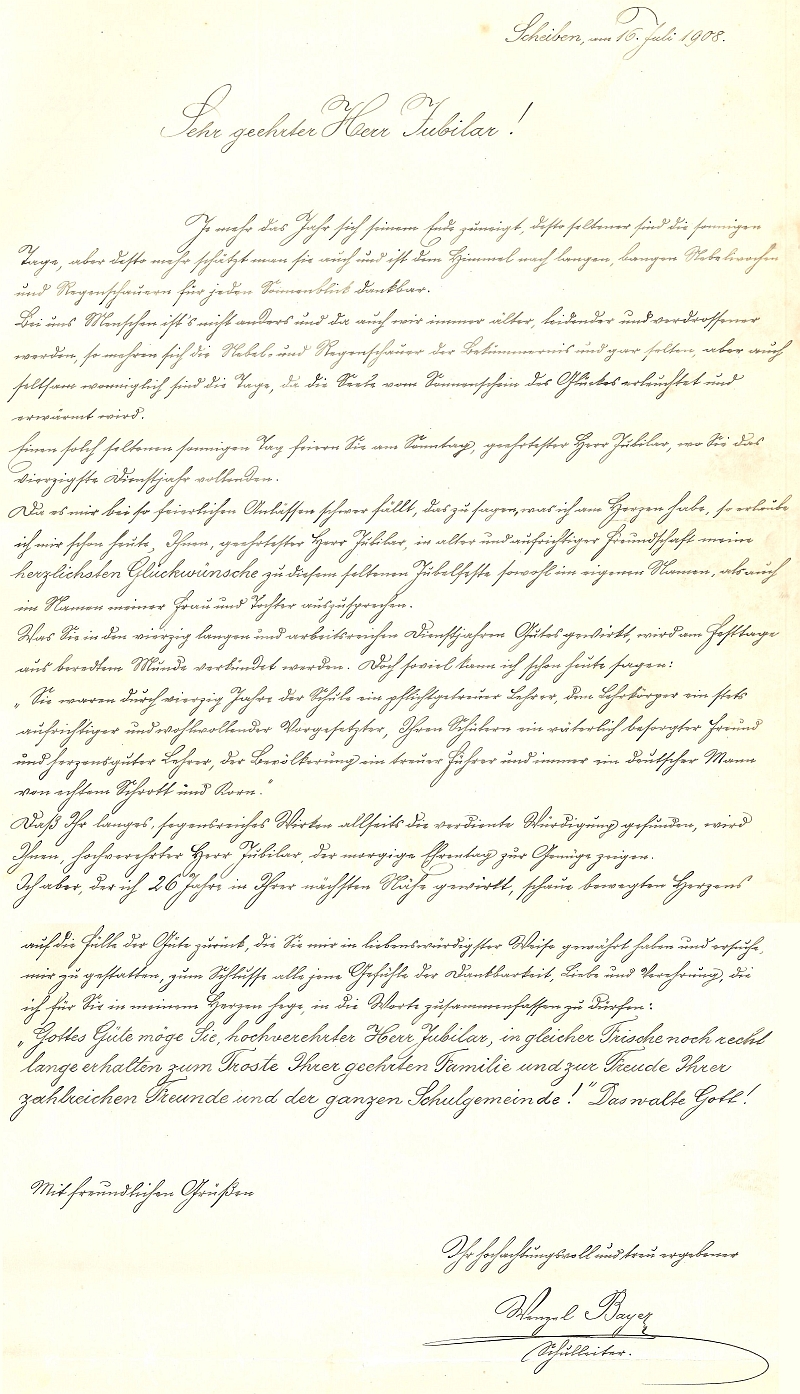 Scheiben, am 16. Juli 1908.
Sehr geehrter Herr Jubilar!
Je mehr das Jahr sich seinem Ende zuneigt, desto seltener sind die sonnigen
Tage, aber desto mehr schätzt man sie auch und ist dem Himmel nach langen, bangen Nebelwochen
und Regenschauern für jeden Sonnenblick dankbar.
Bei uns Menschen ist's nicht anders und da auch wir immer älter, leidender und verdrossener
werden, so mehren sich die Nebel- und Regenschauer der Bekümmernis und gar selten, aber auch
seltsam wonniglich sind die Tage, da die Seele vom Sonnenschein des Glückes erleuchtet und
erwärmt wird.
Einen solch seltenen sonnigen Tag feiern Sie am Sonntag, geehrtester Herr Jubilar, wo Sie das
vierzigste Dienstjahr vollenden.
Da es mir bei so feierlichen Anlässen schwer fällt, das zu sagen, was ich am Herzen habe, so erlaube
ich mir schon heute, Ihnen, geehrtester Herr Jubilar, in alter und aufrichtiger Freundschaft meine
herzlichsten Glückwünsche zu diesem seltenen Jubelfeste sowohl im eigenen Namen, als auch
im Namen meiner Frau und Tochter auszusprechen.
Was Sie in den vierzig langen und arbeitsreichen Dienstjahren Gutes gewirkt, wird am Festtage
aus beredtem Munde verkündet werden. Doch soviel kann ich schon heute sagen:
„Sie waren durch vierzig Jahre der Schule ein pflichtgetreuer Lehrer, dem Lehrkörper ein stets
aufrichtiger und wohlwollender Vorgesetzter, Ihren Schülern ein väterlich besorgter Freund
und herzensguter Lehrer, der Bevölkerung ein treuer Führer und immer ein deutscher Mann
von echtem Schrott und Korn."
Daß Ihr langes, segensreiches Wirken allseits die verdiente Würdigung gefunden, wird
Ihnen, hochverehrter Herr Jubilar, der morgige Ehrentag zur Genüge zeigen.
Ich aber, der ich 26 Jahre in Ihrer nächsten Nähe gewirkt, schaue bewegten Herzens
auf die Fülle der Güte zurück, die Sie mir in liebenswürdigster Weise gewährt haben und ersuche,
mir zu gestatten, zum Schlusse alle jene Gefühle der Dankbarkeit, Liebe und Verehrung, die
ich für Sie in meinem Herzen hege, in die Worte zusammenfassen zu dürfen:
„Gottes Güte möge Sie, hochverehrter Herr Jubilar, in gleicher Frische noch recht
lange erhalten zum Troste Ihrer geehrten Familie und zur Freude Ihrer
zahlreichen Freunde und der ganzen Schulgemeinde!" Das walte Gott!
Mit freundlichen Grüßen
Ihr hochachtungsvoll und treu ergebener
Wenzel Bayer
Schulleiter.